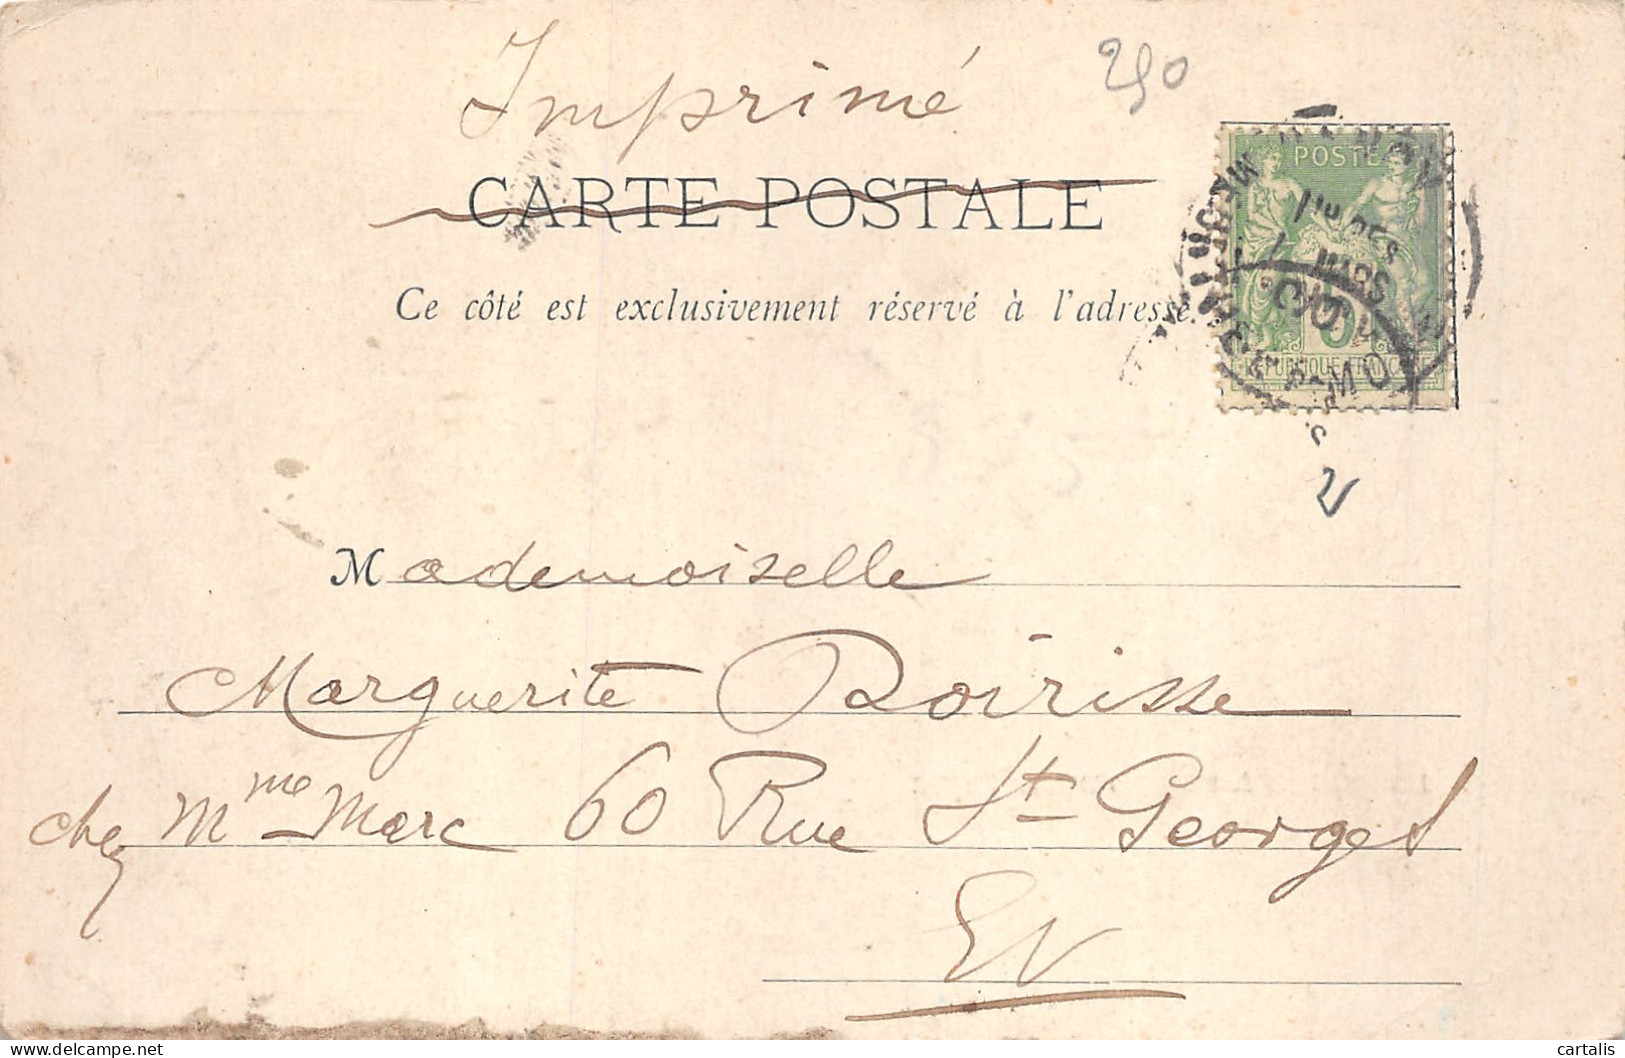 Imprimé
250
CARTE POSTALE
Ce côté est exclusivement réservé à l'adresse.
POSTE
RÉPUBLIQUE FRANÇAISE
Mademoiselle
Marguerite Poirisse
chez Mme Marc 60 Rue St Georges
EV
cartalis